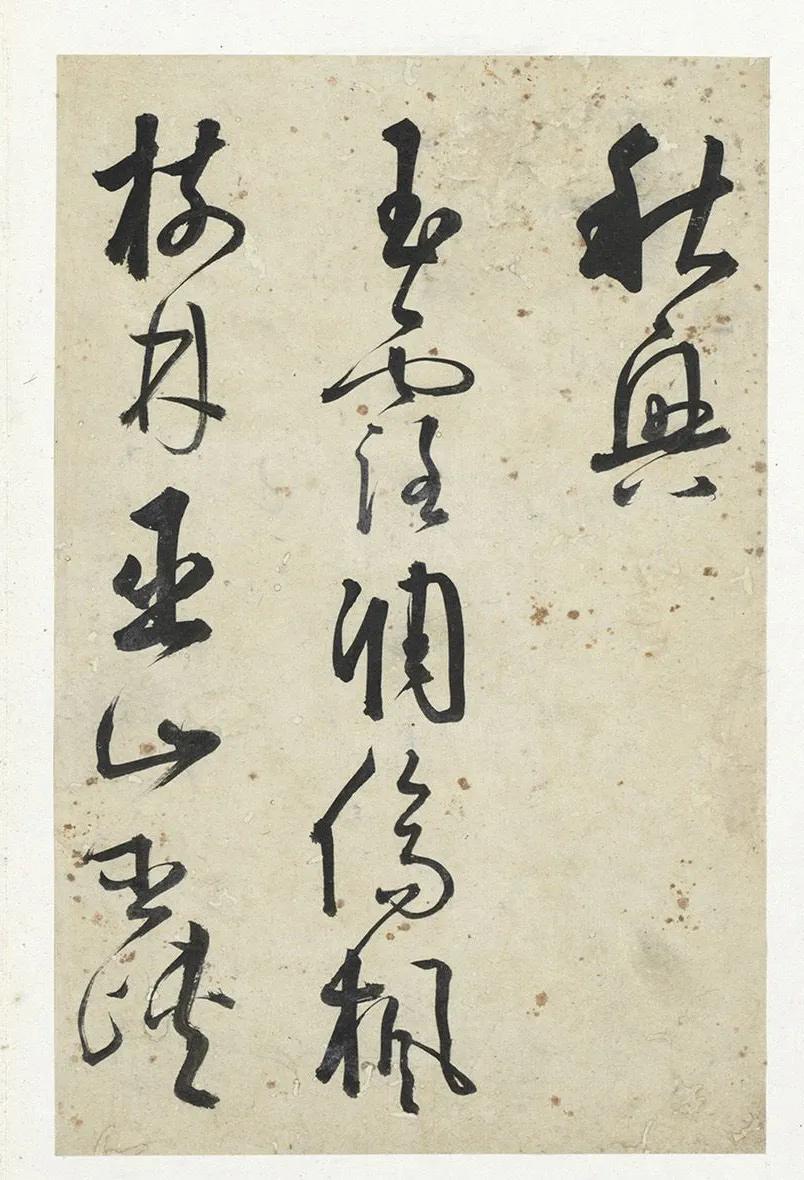 秋興
玉露凋傷楓
樹林巫山巫峽